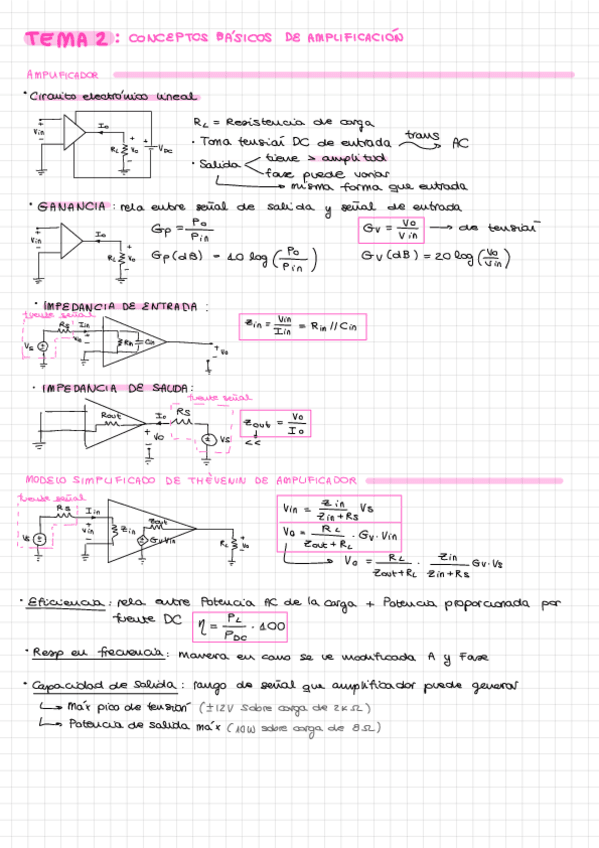 TEMA 2 : CONCEPTOS BÁSICOS DE AMPLIFICACIÓN
AMPLIFICADOR
· Circuito electrónico lineal
Vin
Io
RL
Vo
VDC
RL = Resistencia de carga
· Toma tensiaí DC de entrada trans AC
· Salida
tiene > amplitud
fase puede variar
misma forma que entrada
· GANANCIA : rela entre señal de salida y señal de entrada
Vin
Io
RL
Vo
Gp = Po / Pin
Gv = Vo / Vin → de tensiaí
Gp (dB) = 10 log (Po / Pin)
Gv (dB) = 20 log (Vo / Vin)
· IMPEDANCIA DE ENTRADA :
fuente señal
Rs
Iin
Vs
Rin
Cin
Vo
Zin = Vin / Iin = Rin // Cin
· IMPEDANCIA DE SALIDA :
fuente señal
Rout
Io
Rs
Vo
Vs
Zout = Vo / Io
<<
MODELO SIMPLIFICADO DE THÈVENIN DE AMPLIFICADOR
fuente señal
Rs
Iin
Vs
Vin
Zin
Zout
Gv·Vin
RL
Vo
Vin = Zin / Zin + Rs Vs
Vo = RL / Zout + RL · Gv · Vin
Vo = RL / Zout + RL · Zin / Zin + Rs Gv · Vs
· Eficiencia : rela entre Potencia AC de la carga + Potencia proporcionada por
fuente DC η = PL / PDC · 100
· Resp en frecuencia : manera en como se ve modificada A y Fase
· Capacidad de salida : rango de señal que amplificador puede generar
Máx pico de tensiaí (±12V sobre carga de 2KΩ)
Potencia de salida máx (10W sobre carga de 8Ω)